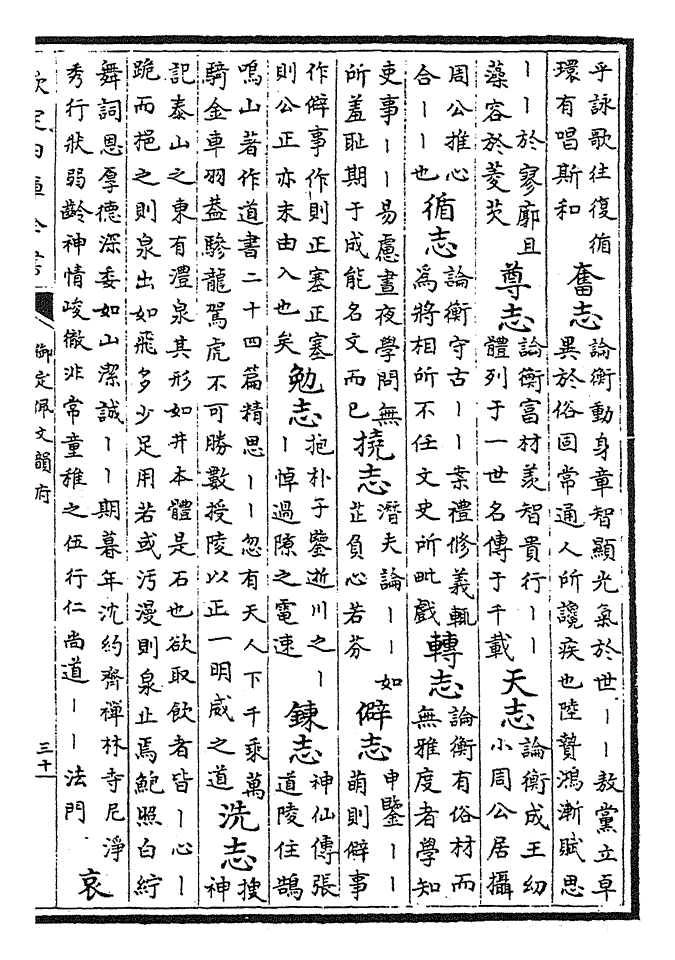 乎詠歌往復循
環有唱斯和
奮志
論衡動身章智顯光氣於世｜｜敖黨立卓
異於俗固常通人所讒疾也陸贄鴻漸賦思
｜｜於寥廓且
藻容於菱芡
尊志
論衡富材羨智貴行｜｜
體列于一世名傳于千載
天志
論衡成王幼
小周公居攝
周公推心
合｜｜也
循志
論衡守古｜｜案禮修義輒
為將相所不任文史所毗戲
轉志
論衡有俗材而
無雅度者學知
吏事｜｜易慮晝夜學問無
所羞恥期于成能名文而已
撓志
潛夫論｜｜如
芷負心若芬
僻志
申鑒｜｜
萌則僻事
作僻事作則正塞正塞
則公正亦末由入也矣
勉志
抱朴子鑒逝川之｜
｜悼過隙之電速
鍊志
神仙傳張
道陵住鵠
鳴山著作道書二十四篇精思｜｜忽有天人下千乘萬
騎金車羽蓋驂龍駕虎不可勝數授陵以正一明威之道
洗志
搜
神
記泰山之東有澧泉其形如井本體是石也欲取飲者皆｜心｜
跪而挹之則泉出如飛多少足用若或污漫則泉止焉鮑照白紵
舞詞恩厚德深委如山潔誠｜｜期暮年沈約齊禪林寺尼淨
秀行狀弱齡神情峻徹非常童稚之伍行仁尚道｜｜法門
哀
欽定四庫全書
御定佩文韻府
三十一